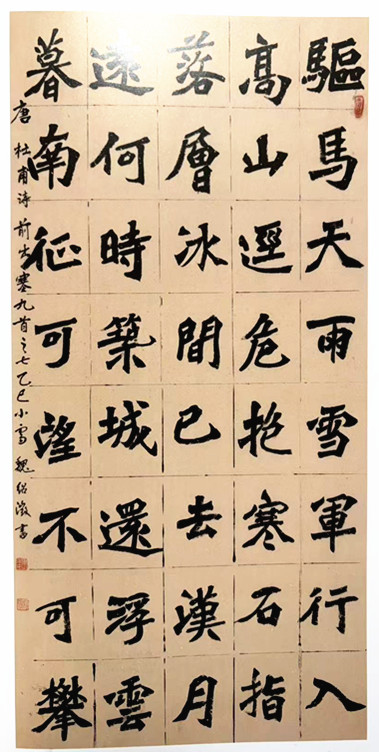 驅馬天雨雪軍行入
高山逕危抱寒石指
落層冰間已去漢月
遠何時築城還浮雲
暮南征可望不可攀
唐 杜甫诗 前出塞九首之七 乙巳小雪 魏绍 書